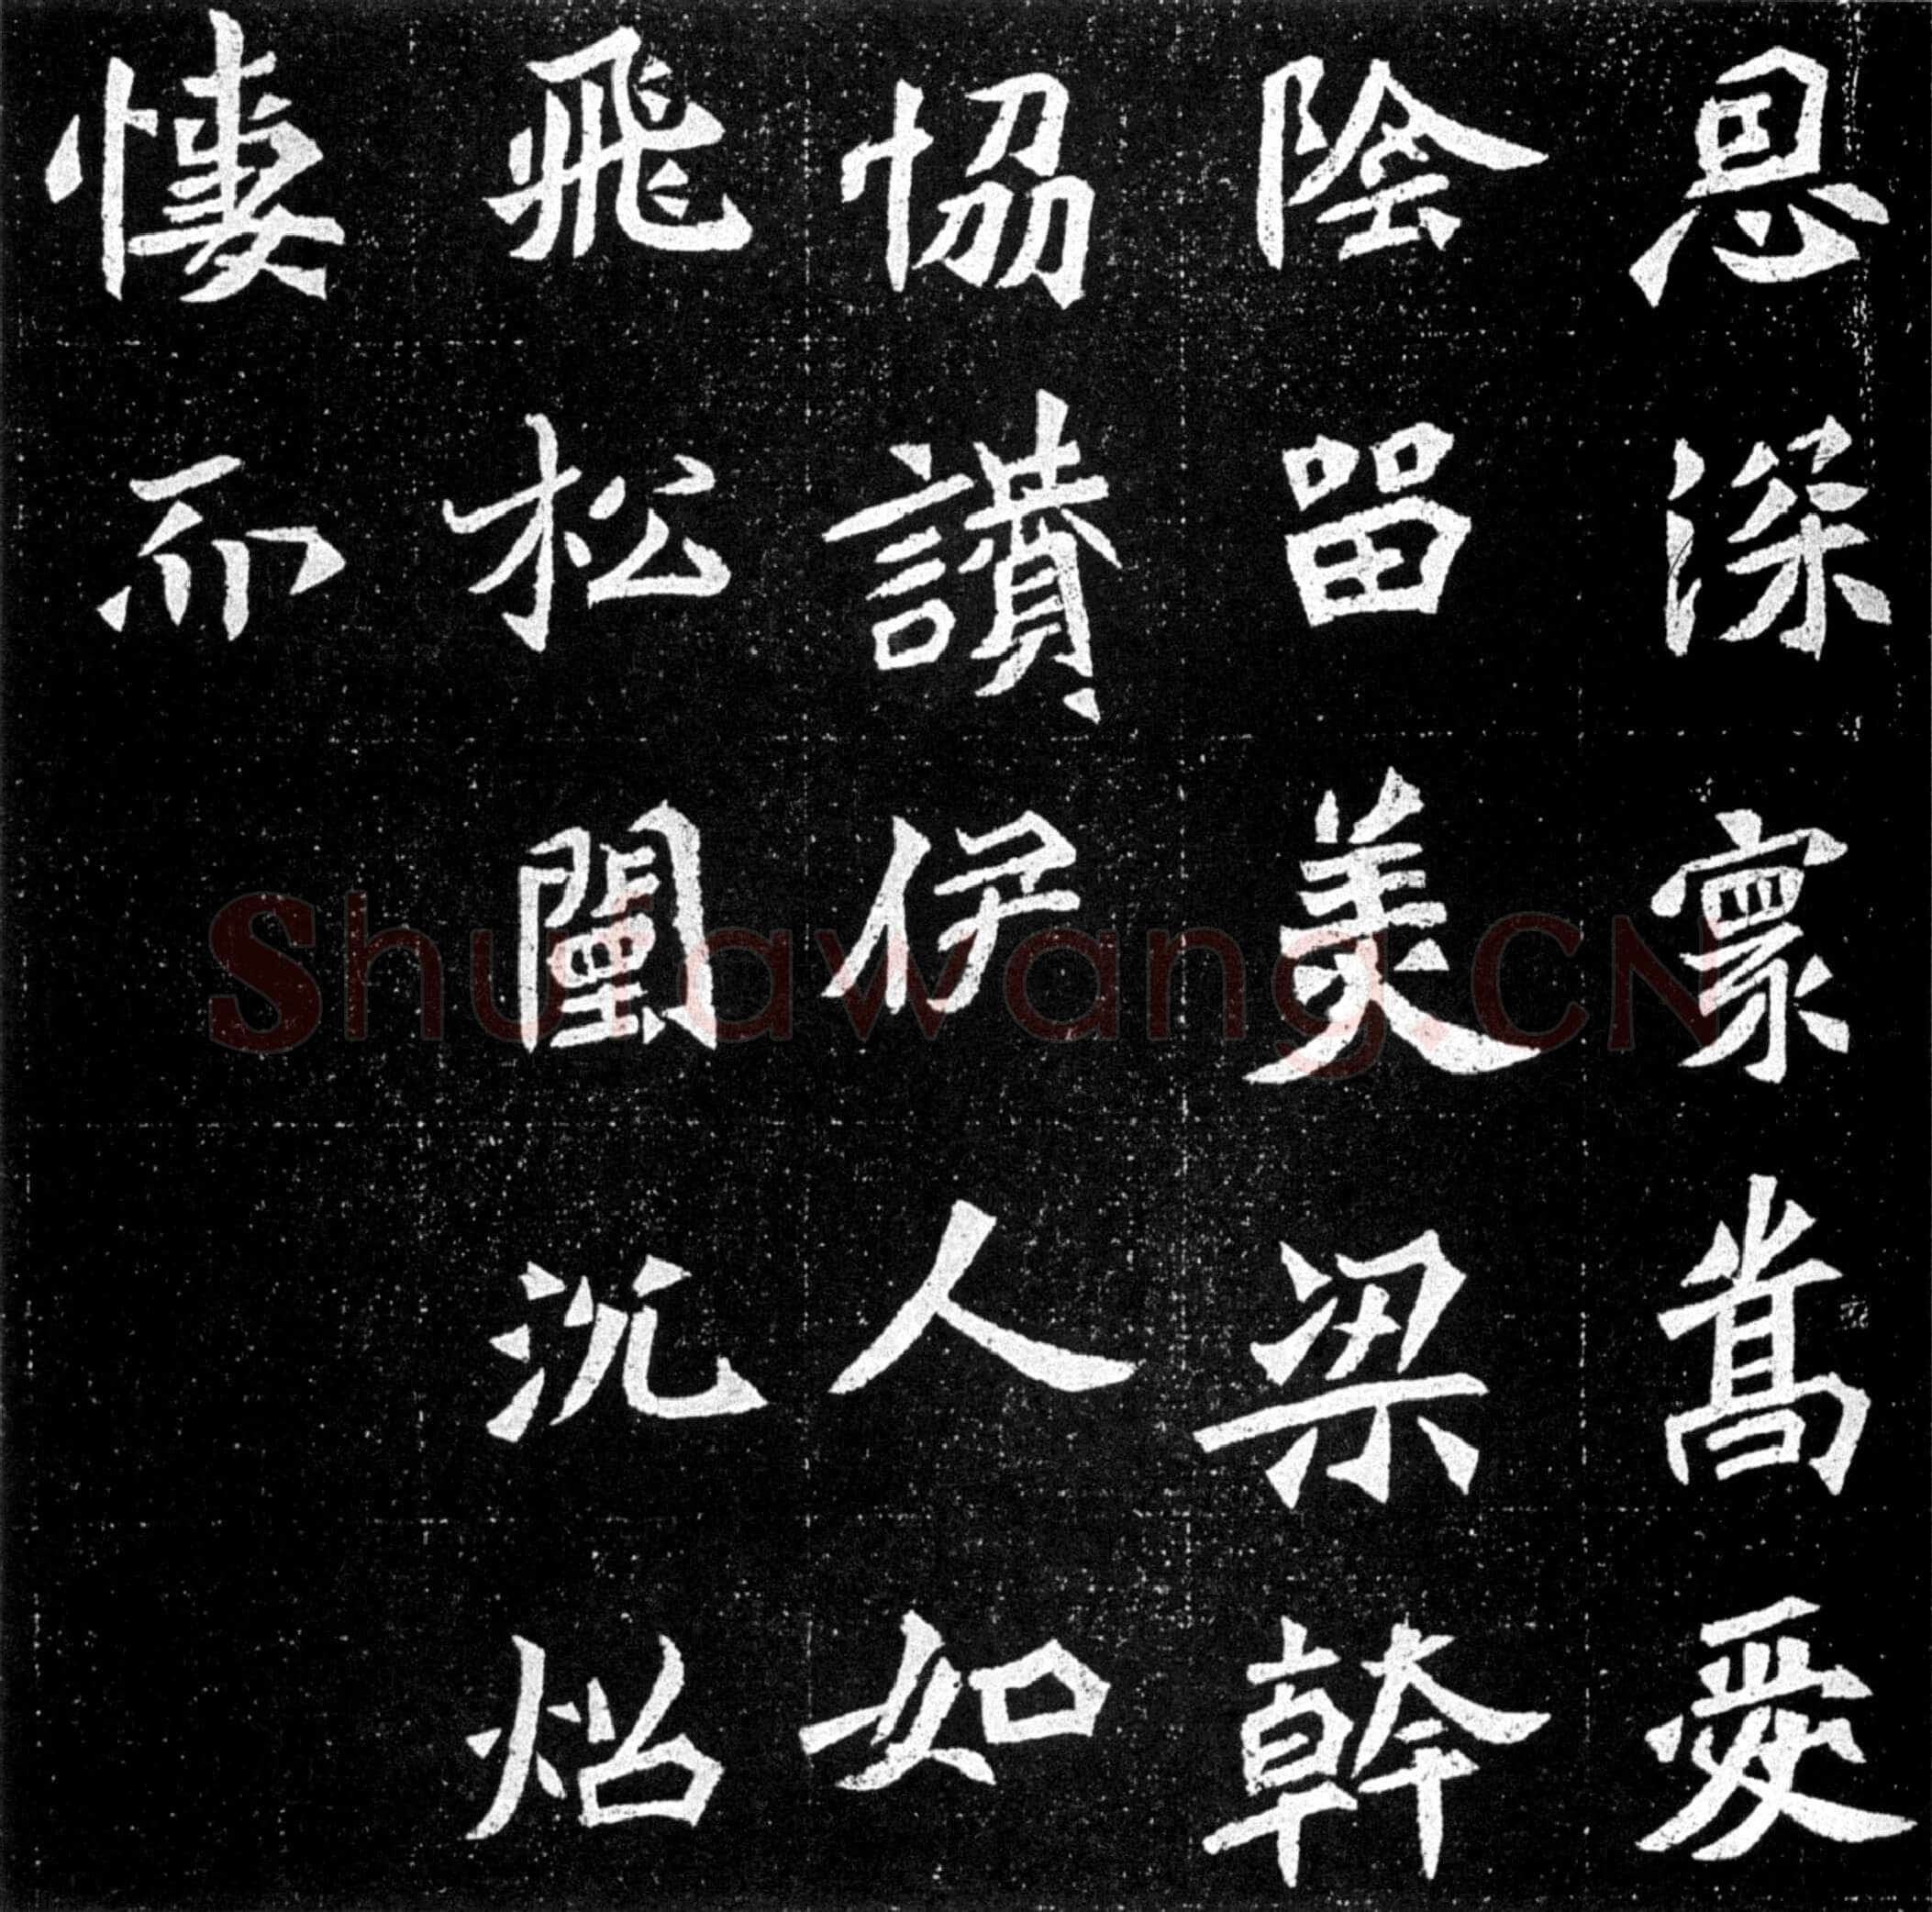 恩深寰嵩愛
陰留美梁幹
恊讚伊人如
飛松闉沉炤
悽
Shufawang.CN